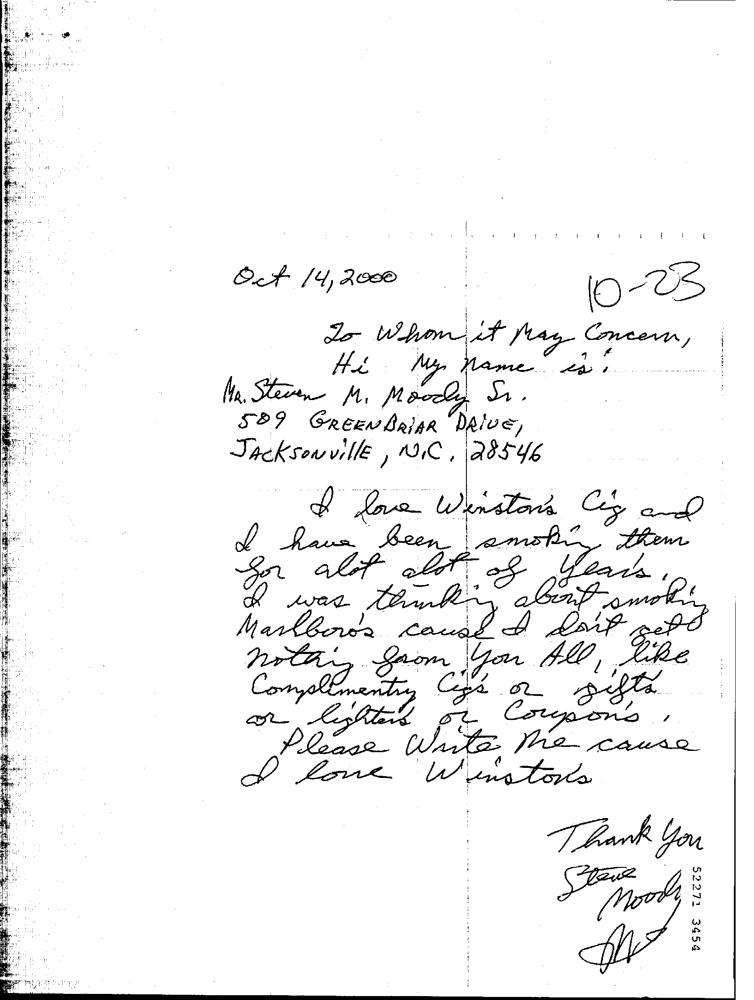 Oct 14, 2000
10-23
To Whom it May Concern,
Hi My name is:
Mr. Steven M. Moody Sr.
589 GREENBRIAR DRIVE,
JACKSONVILLE, N.C. 28546
I love Winston's Cig and
I have been smoking them
for alot alot of Years.
I was thinking about smoking
Marlboro's cause I don't get
nothing from You All, like
Complimentry Cig's or gifts
or lighters or Coupon's.
Please Write Me cause
I love Winston's
Thank You
Steve
Moody
52271 3454